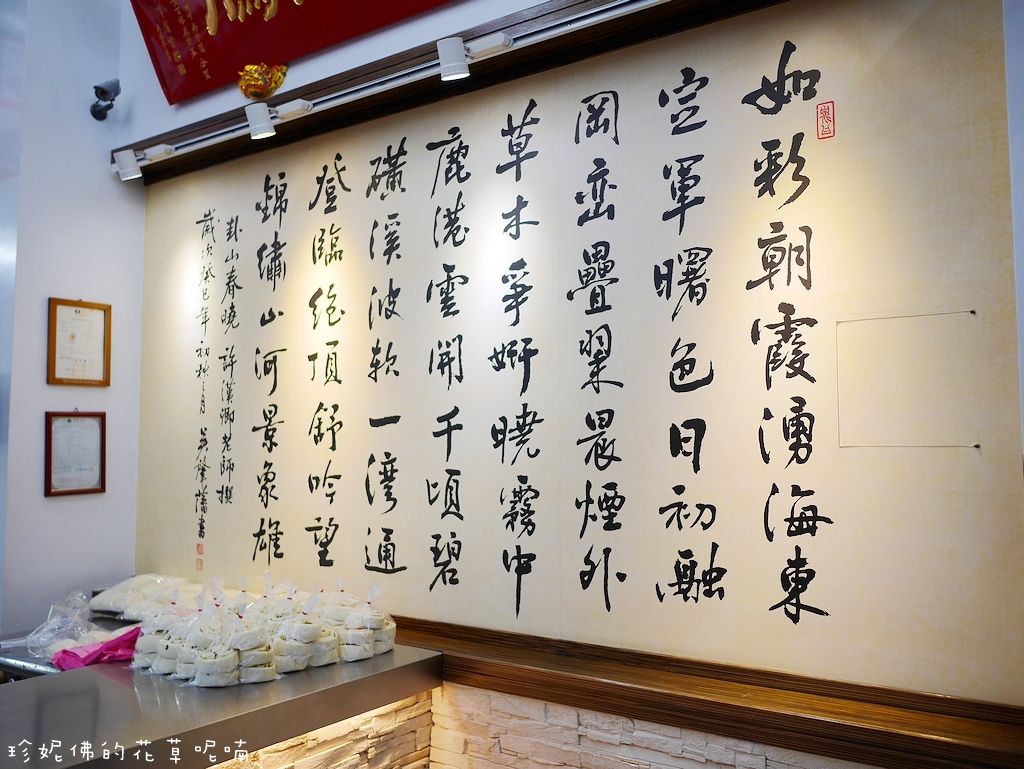 如彩朝霞湧海東
定軍曙色日初融
岡巒疊翠晨煙外
草木爭妍曉霧中
鹿港雲開千頃碧
磺溪波軟一灣通
登臨絕頂舒吟望
錦繡山河景象雄
卦山春曉 許漢卿老師撰
歲次癸巳年初秋之月 吳肇藩書
珍妮佛的花草呢喃